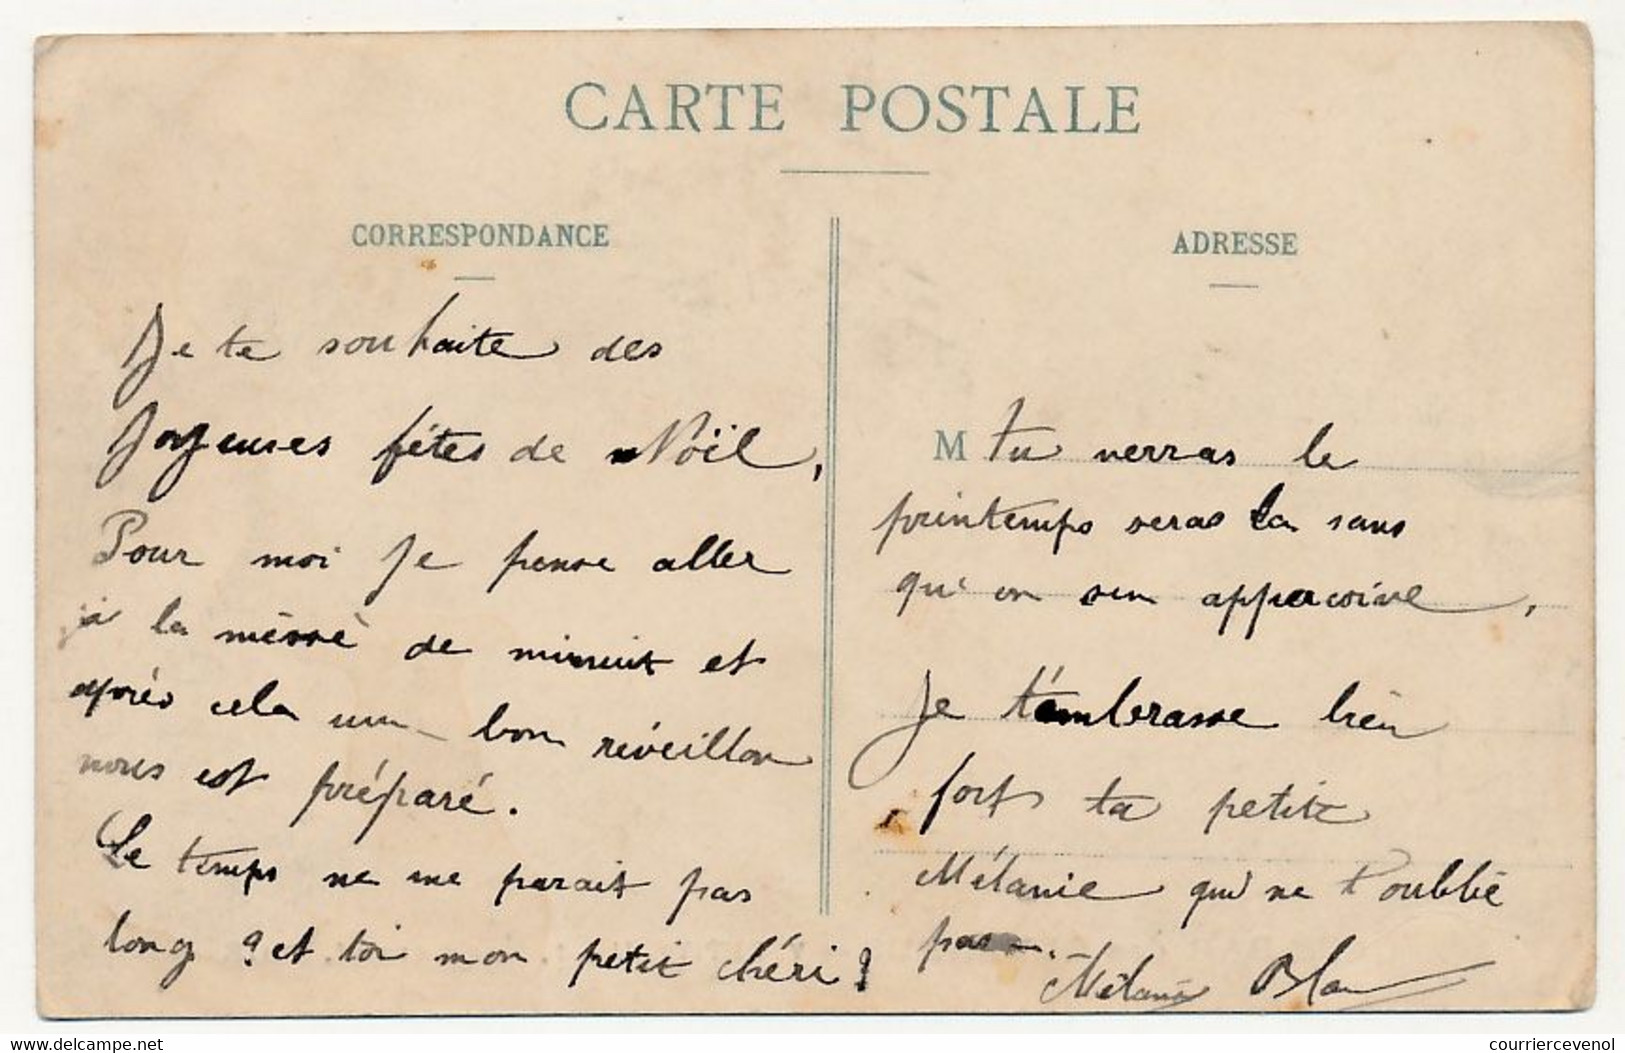 CARTE POSTALE
CORRESPONDANCE
Je te souhaite des
Joyeuses fêtes de Nöël,
Pour moi Je pense aller
à la messe de minuit et
après cela un bon réveillon
nous est préparé.
Le temps ne me parait pas
long ? et toi mon petit chéri ?
ADRESSE
M tu verras le
printemps seras la sans
qu'on s'en appercoive,
Je t'embrasse bien
fort ta petite
Mélanie qui ne t'oublie
pas.
Mélanie
www.delcampe.net
courriercevenol